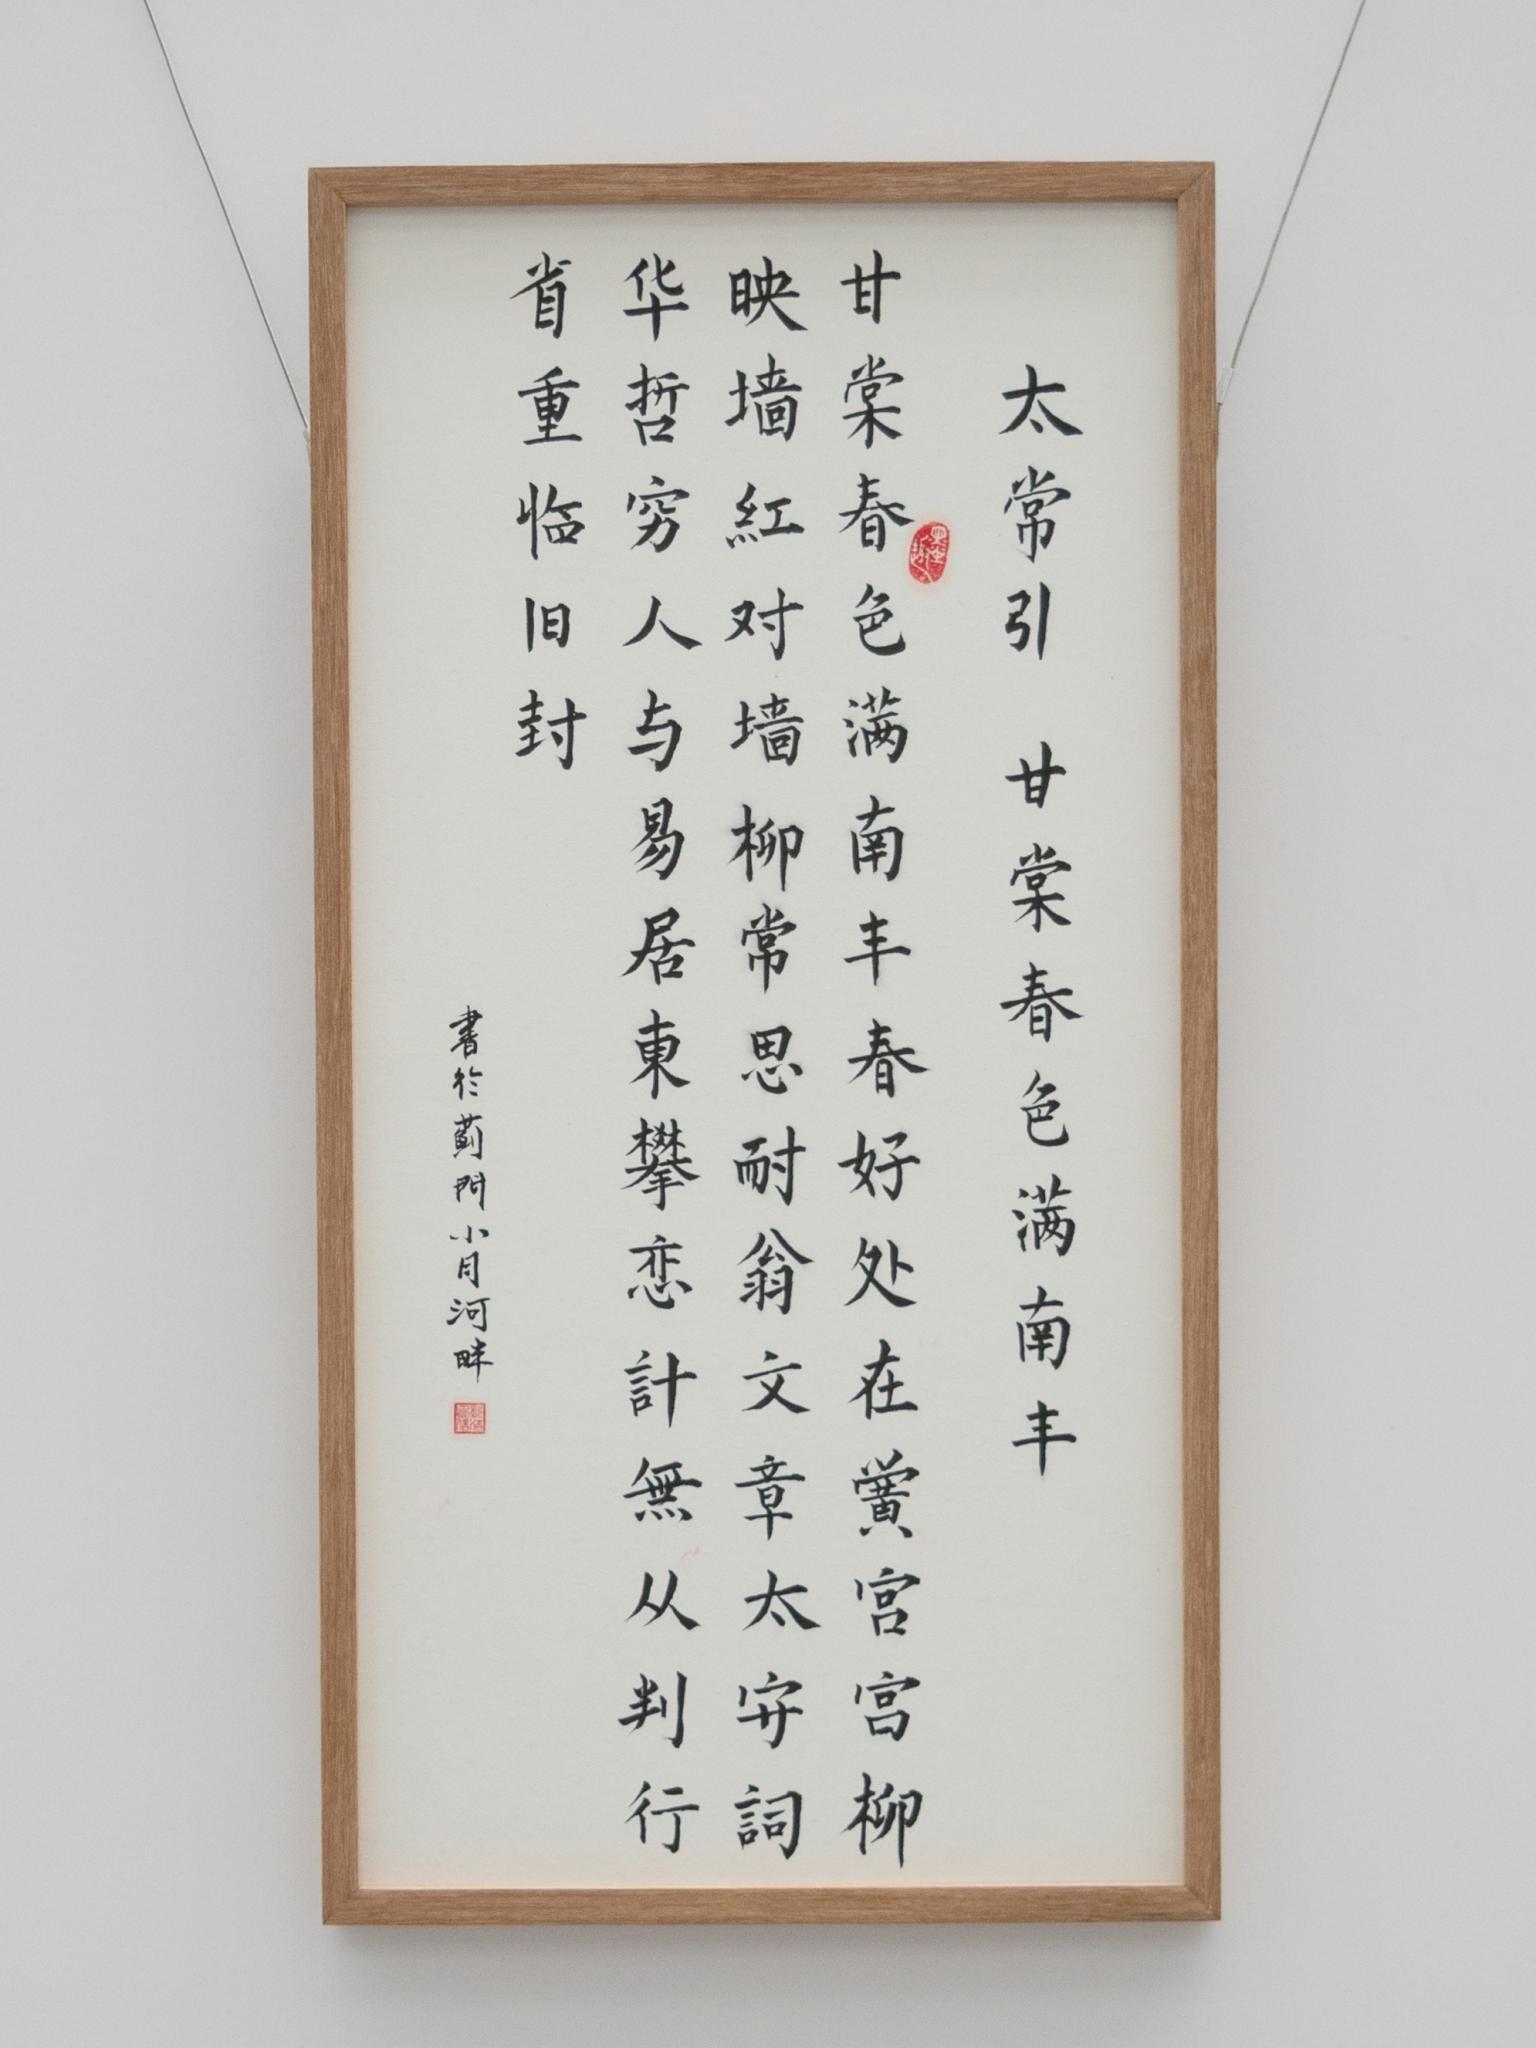 太常引 甘棠春色满南丰
甘棠春色满南丰春好处在黉宫宫柳
映墙紅对墙柳常思耐翁文章太守詞
华哲穷人与易居東攀恋計無从判行
省重临旧封
書於薊門小月河畔